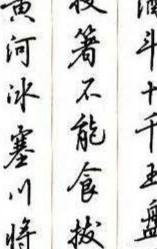 酒斗十千玉盤
投箸不能食拔
黄河冰塞川將